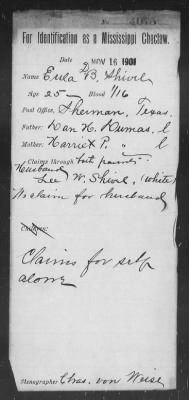 For Identification as a Mississippi Choctaw.
Date NOV 16 1901
Name Eula B. Shivel
Age 25 Blood 1/16
Post Office, Sherman, Texas.
Father: Dan H. Dumas. l
Mother: Harriet P. " l
Claims through both parents.
Husband
Lee W. Shivel, (white)
No claim for husband
Children:
Claims for self
alone
Stenographer Chas. von Weise